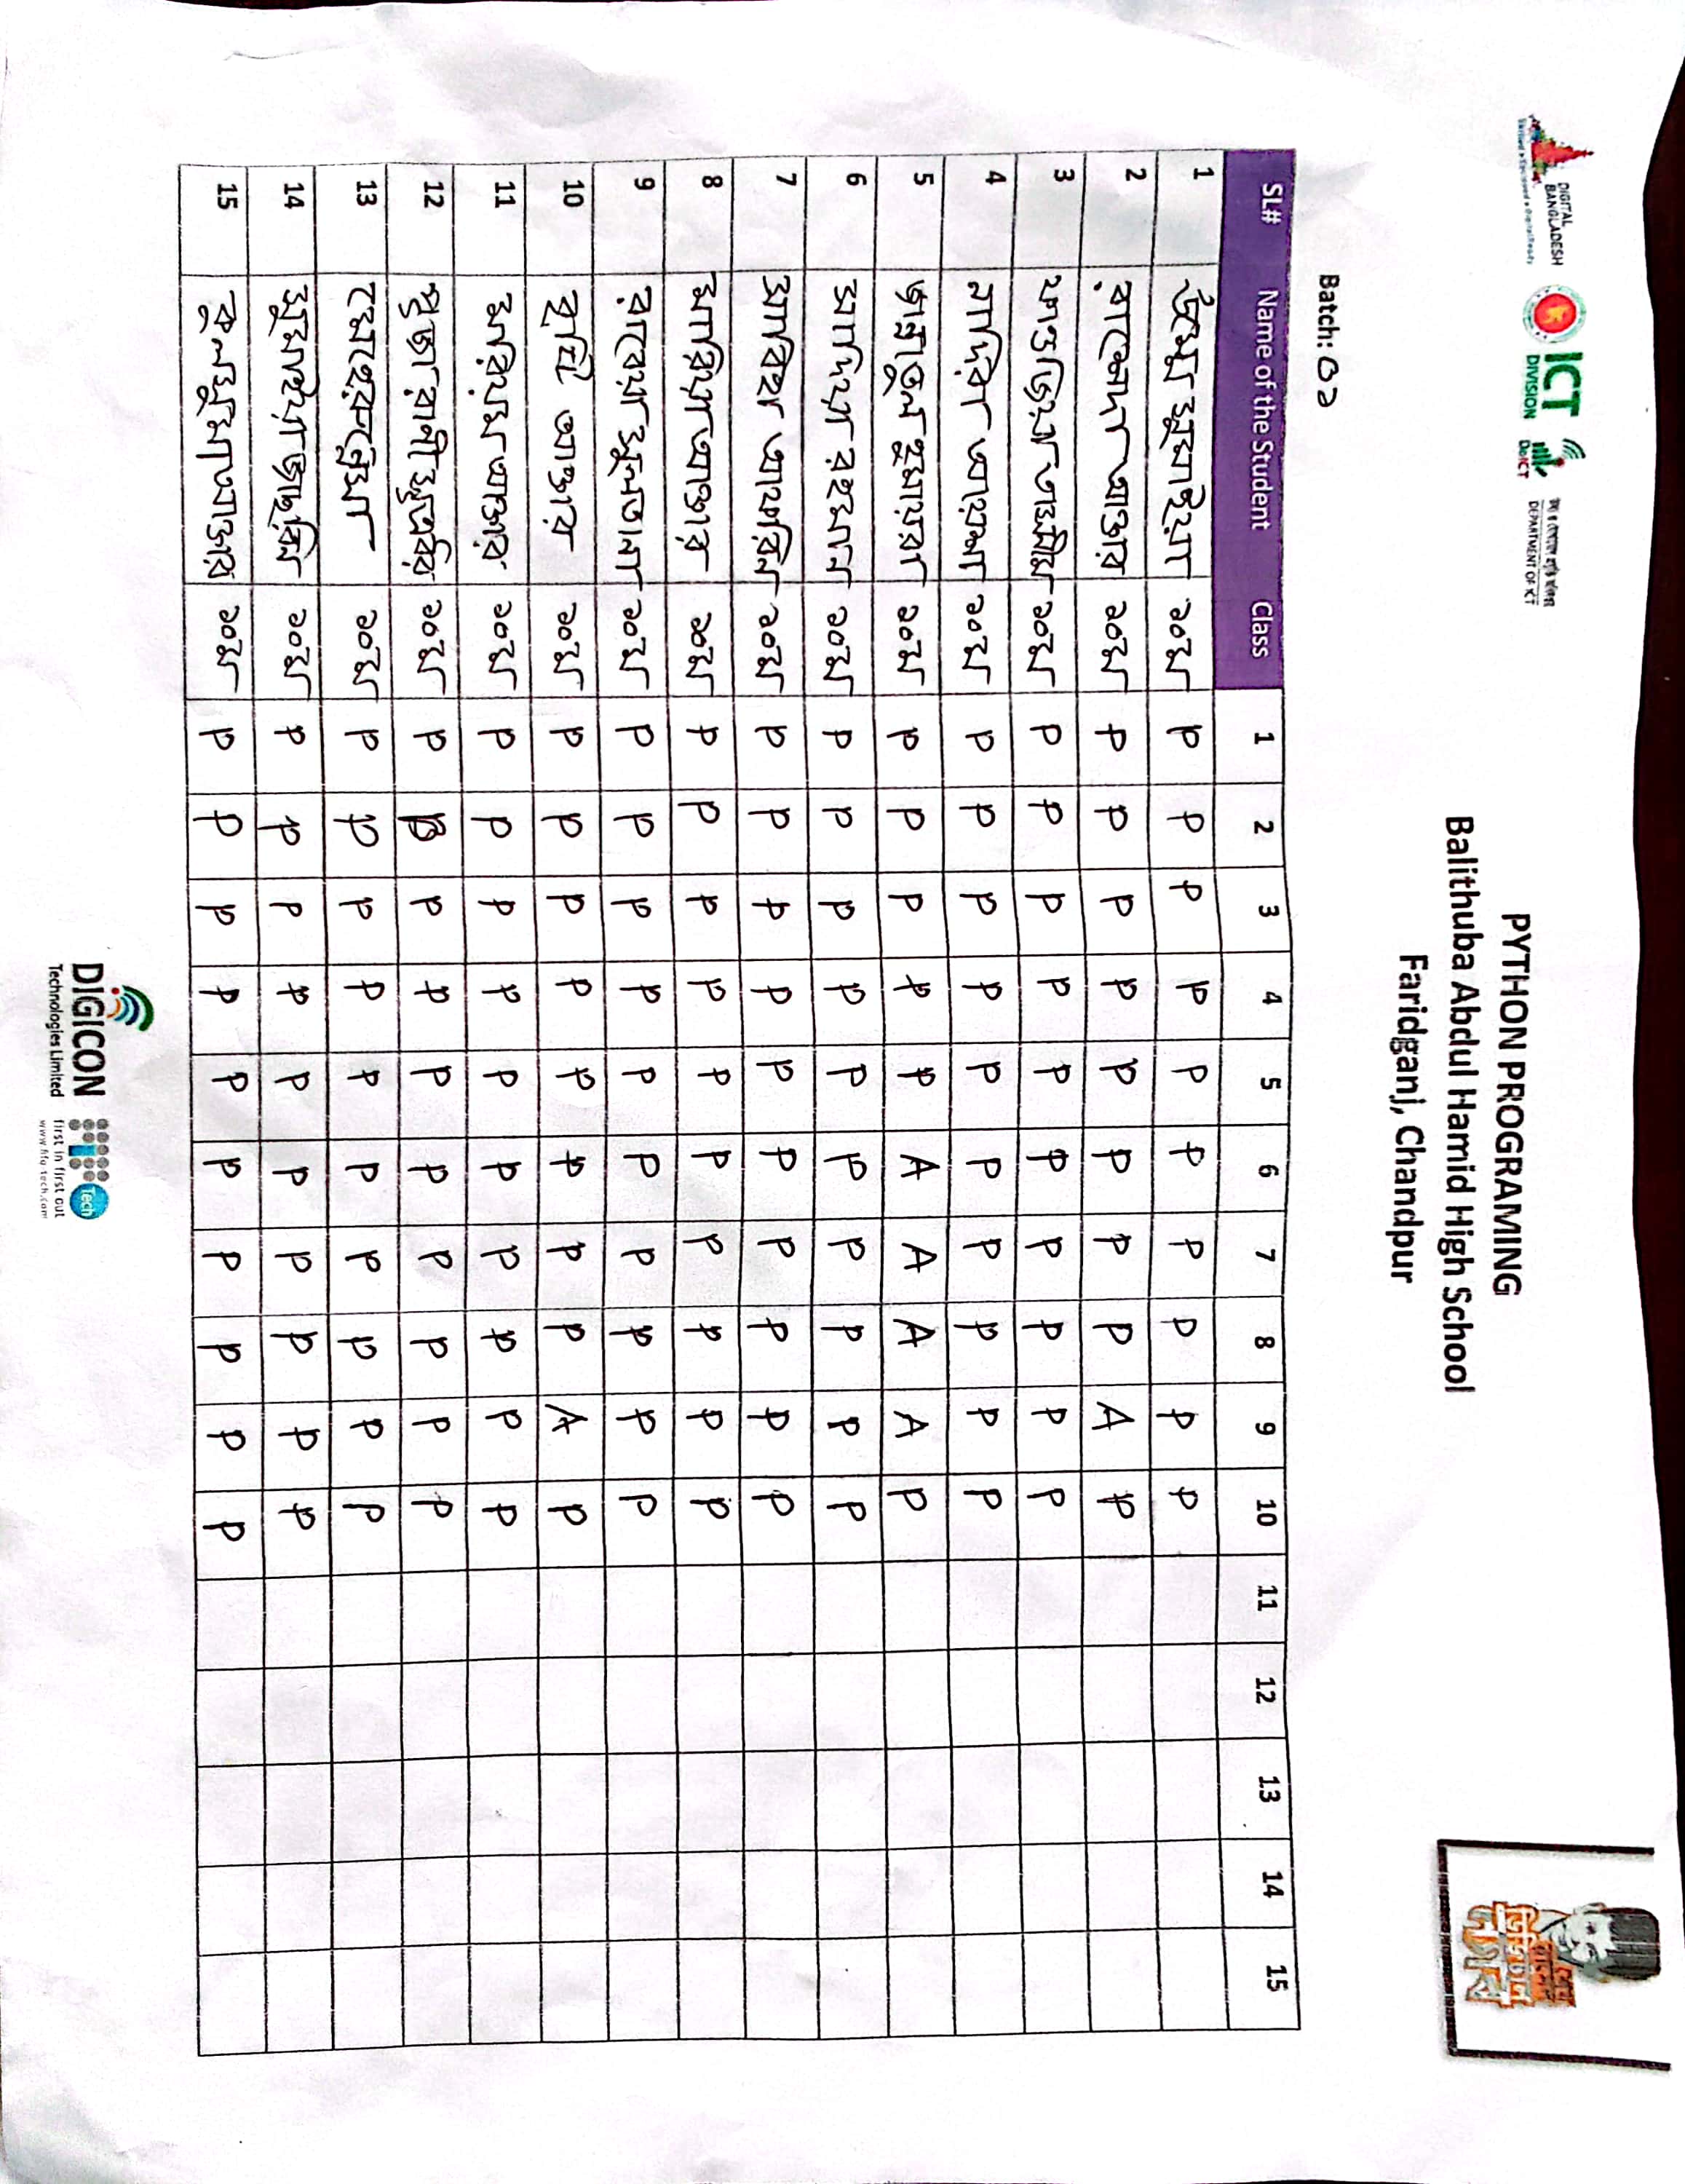 DIGITAL
BANGLADESH
ICT
DIVISION
DoICT
তথ্য ও যোগাযোগ প্রযুক্তি অধিদপ্তর
DEPARTMENT OF ICT
শেখ
রাসেল
ডিজিটাল
ল্যাব
PYTHON PROGRAMING
Balithuba Abdul Hamid High School
Faridganj, Chandpur
Batch: ০১
SL# Name of the Student Class 1 2 3 4 5 6 7 8 9 10 11 12 13 14 15
1 উম্মে সুমাইয়া ১০ম P P P P P P P P P P
2 রাশেদা আক্তার ১০ম P P P P P P P P A P
3 ফাওজিয়া তাসনীম ১০ম P P P P P P P P P P
4 নাদিরা আয়েশা ১০ম P P P P P P P P P P
5 জান্নাতুল হুমায়রা ১০ম P P P P P A A A A P
6 সাদিয়া রহমান ১০ম P P P P P P P P P P
7 সাবিহা আফরিন ১০ম P P P P P P P P P P
8 মারিয়া আক্তার ১০ম P P P P P P P P P P
9 রাবেয়া সুলতানা ১০ম P P P P P P P P P P
10 বৃষ্টি আক্তার ১০ম P P P P P P P P A P
11 মরিয়ম আক্তার ১০ম P P P P P P P P P P
12 পূজা রাণী সূত্রধর ১০ম P P P P P P P P P P
13 মেহেরুন্নেসা ১০ম P P P P P P P P P P
14 সুমাইয়া জাছরিন ১০ম P P P P P P P P P P
15 কুলসুমা আক্তার ১০ম P P P P P P P P P P
DIGICON
Technologies Limited
Tech
first in first out
www.fifo-tech.com